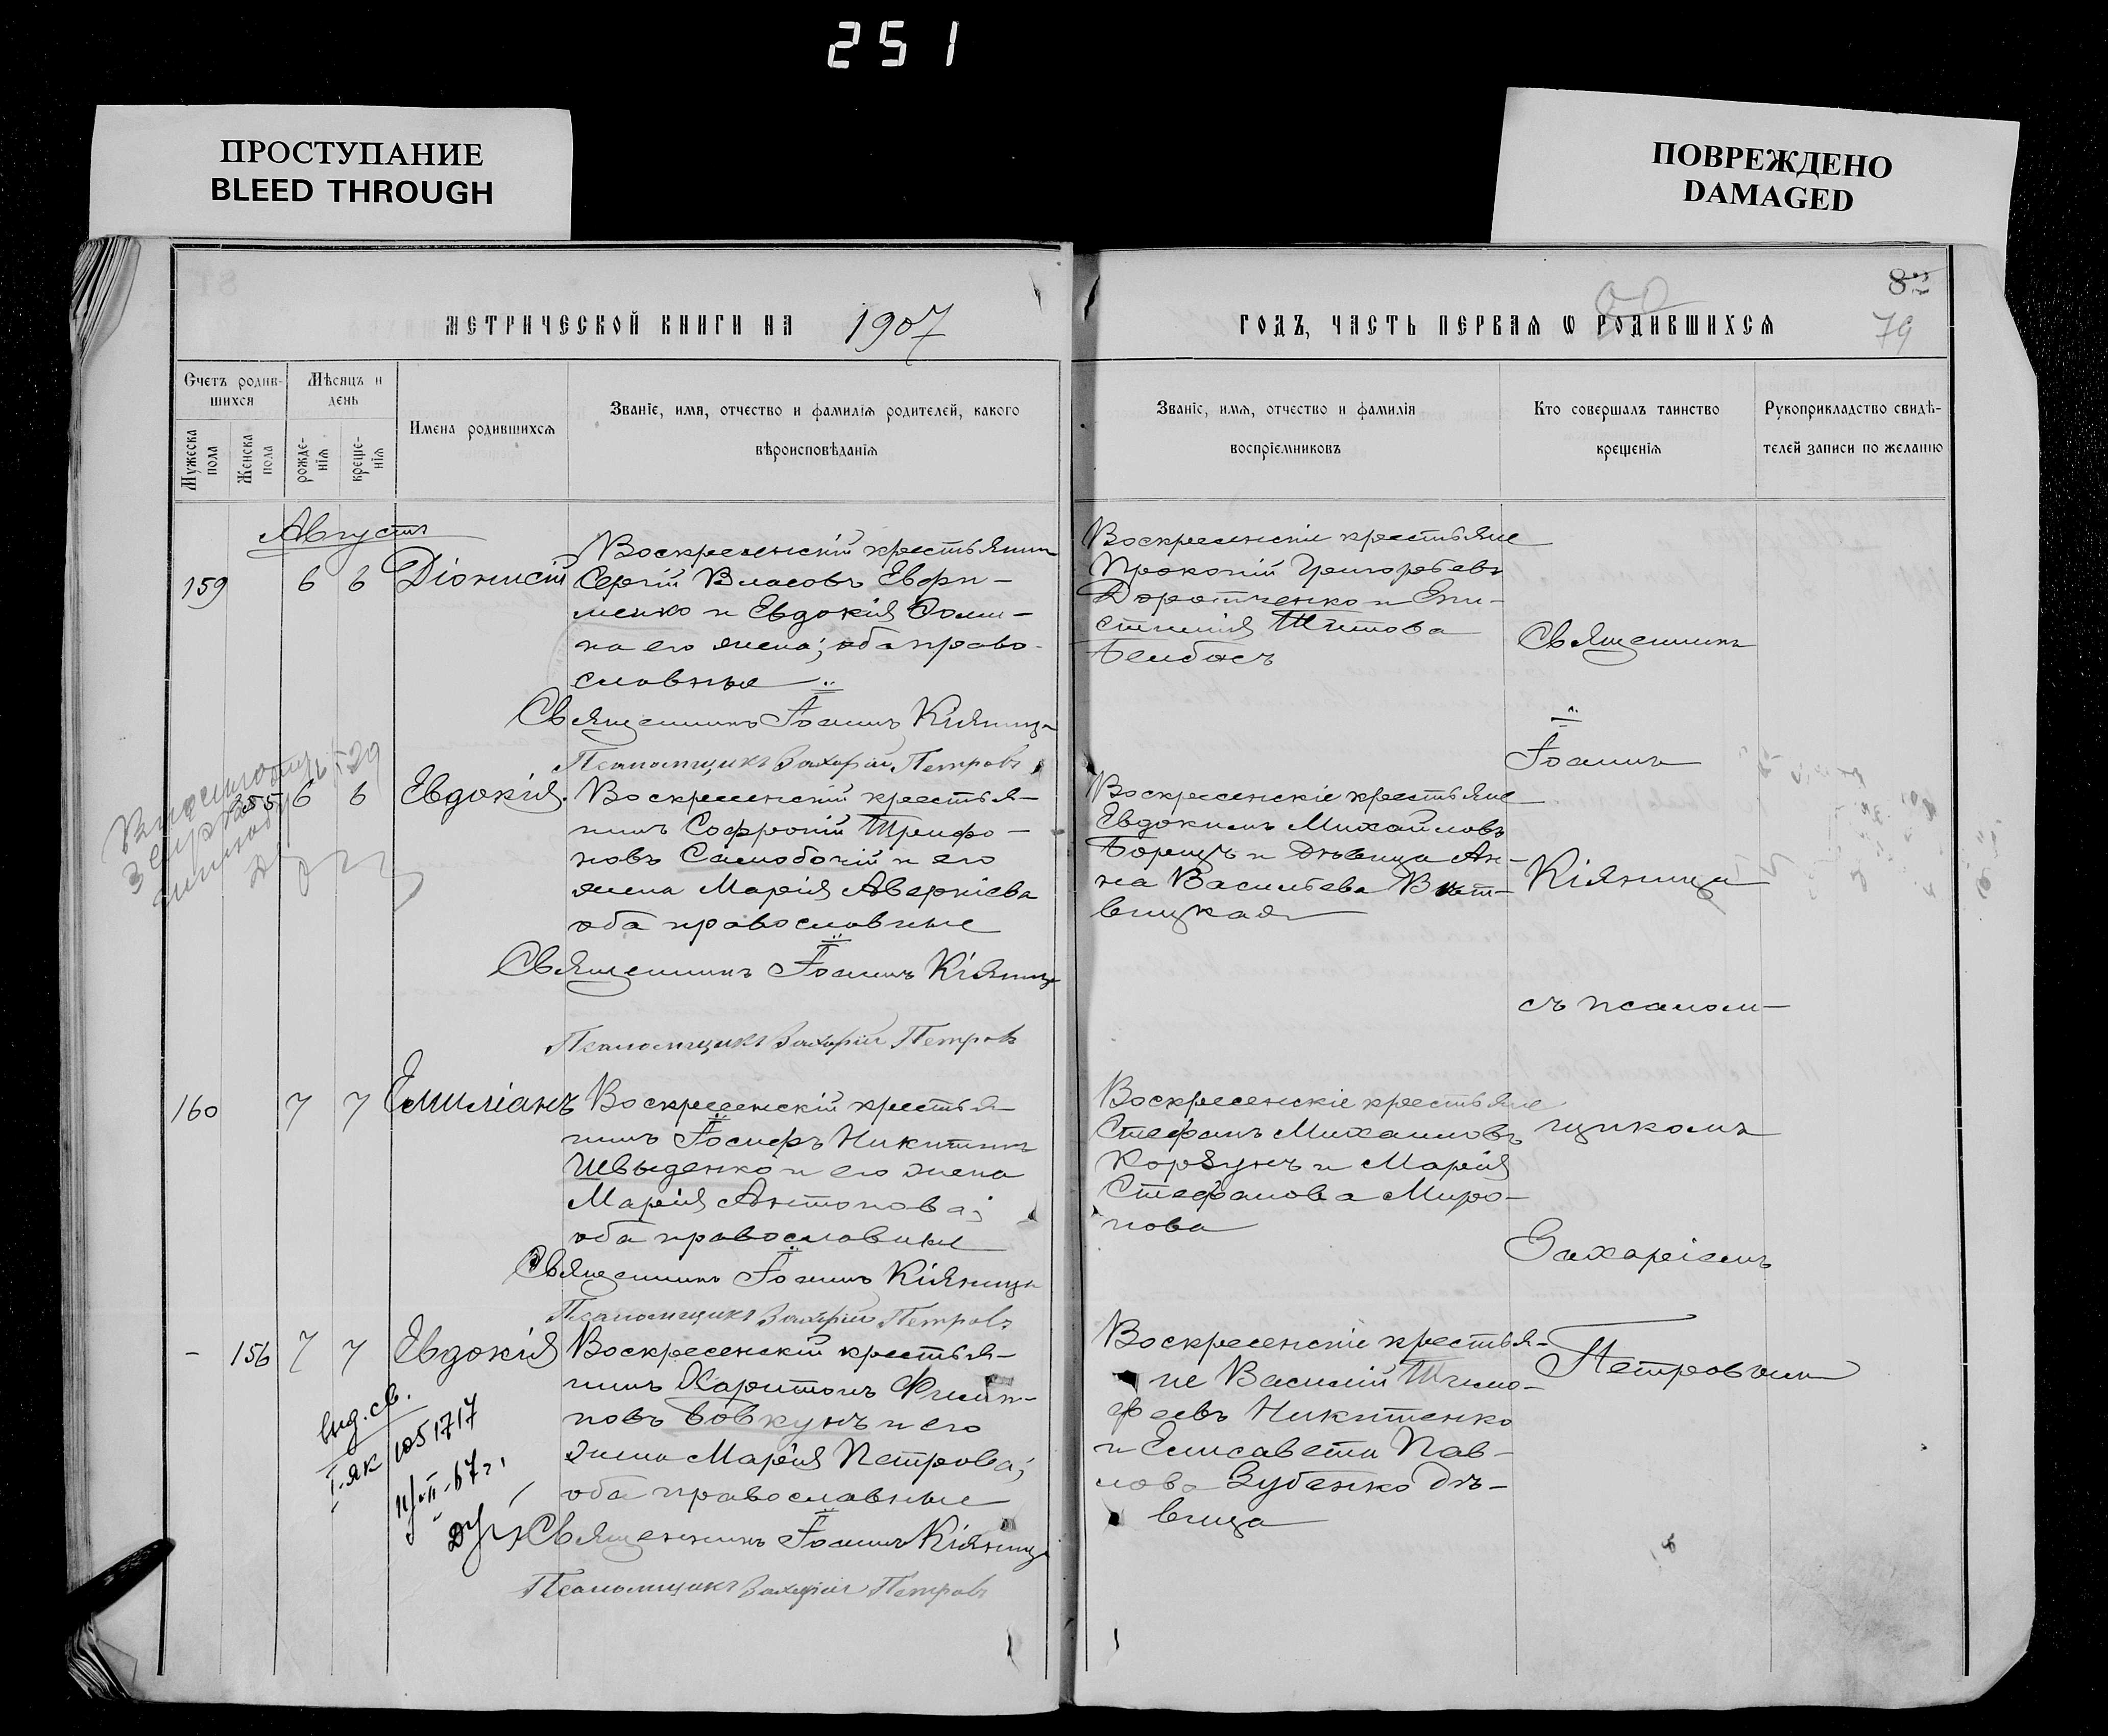 251
ПРОСТУПАНИЕ
BLEED THROUGH
ПОВРЕЖДЕНО
DAMAGED
79
МЕТРИЧЕСКОЙ КНИГИ НА 1907
ГОДЪ, ЧАСТЬ ПЕРВАЯ Ѡ РОДИВШИХСЯ
Счетъ родив-
шихся
Мѣсяцъ и
день
Мужеска
пола
Женска
пола
рожде-
нія
креще-
нія
Имена родившихся
Званіе, имя, отчество и фамилія родителей, какого
вѣроисповѣданія
Званіе, имя, отчество и фамилія
воспріемниковъ
Кто совершалъ таинство
крещенія
Рукоприкладство свидѣ-
телей записи по желанію
Августъ
159 6 6 Діонисій
Воскресенскій крестьянинъ
Сергій Власовъ Евфи-
менко и Евдокія Ѳоми-
на его жена; оба право-
славные
Священникъ Іоаннъ Кіяница
Псаломщикъ Захарій Петровъ
Воскресенскіе крестьяне
Прокопій Григорьевъ
Доротченко и Епи-
стимія Титова
Белбасъ
155 6 6 Евдокія.
Воскресенскій крестья-
нинъ Софроній Трифо-
новъ Самобочій и его
жена Марія Аверкіева
оба православные
Священникъ Іоаннъ Кіяница
Псаломщикъ Захарій Петровъ
Воскресенскіе крестьяне
Евдокимъ Михайловъ
Борщъ и дѣвица Ан-
на Васильева
вицкая
160 7 7 Емиліанъ
Воскресенскій крестья-
нинъ Іосифъ Никитинъ
Швыденко и его жена
Марія Антонова;
оба православные
Священникъ Іоаннъ Кіяница
Псаломщикъ Захарій Петровъ
Воскресенскіе крестьяне
Стефанъ Михаиловъ
Корзунъ и Марія
Стефанова Миро-
нова
- 156 7 7 Евдокія
Воскресенскій крестья-
нинъ Харитонъ Филип-
повъ Бовкунъ и его
жена Марія Петрова;
оба православные
Священникъ Іоаннъ Кіяница
Псаломщикъ Захарій Петровъ
Воскресенскіе крестья-
не Василій Тимо-
феевъ Никитенко
и Елисавета Пав-
лова Зубенко дѣ-
вица
Священникъ
Іоаннъ
Кіяница
съ псалом-
щикомъ
Захаріемъ
Петровымъ
выд. св.
І-як 1051717
11/-II-67г.